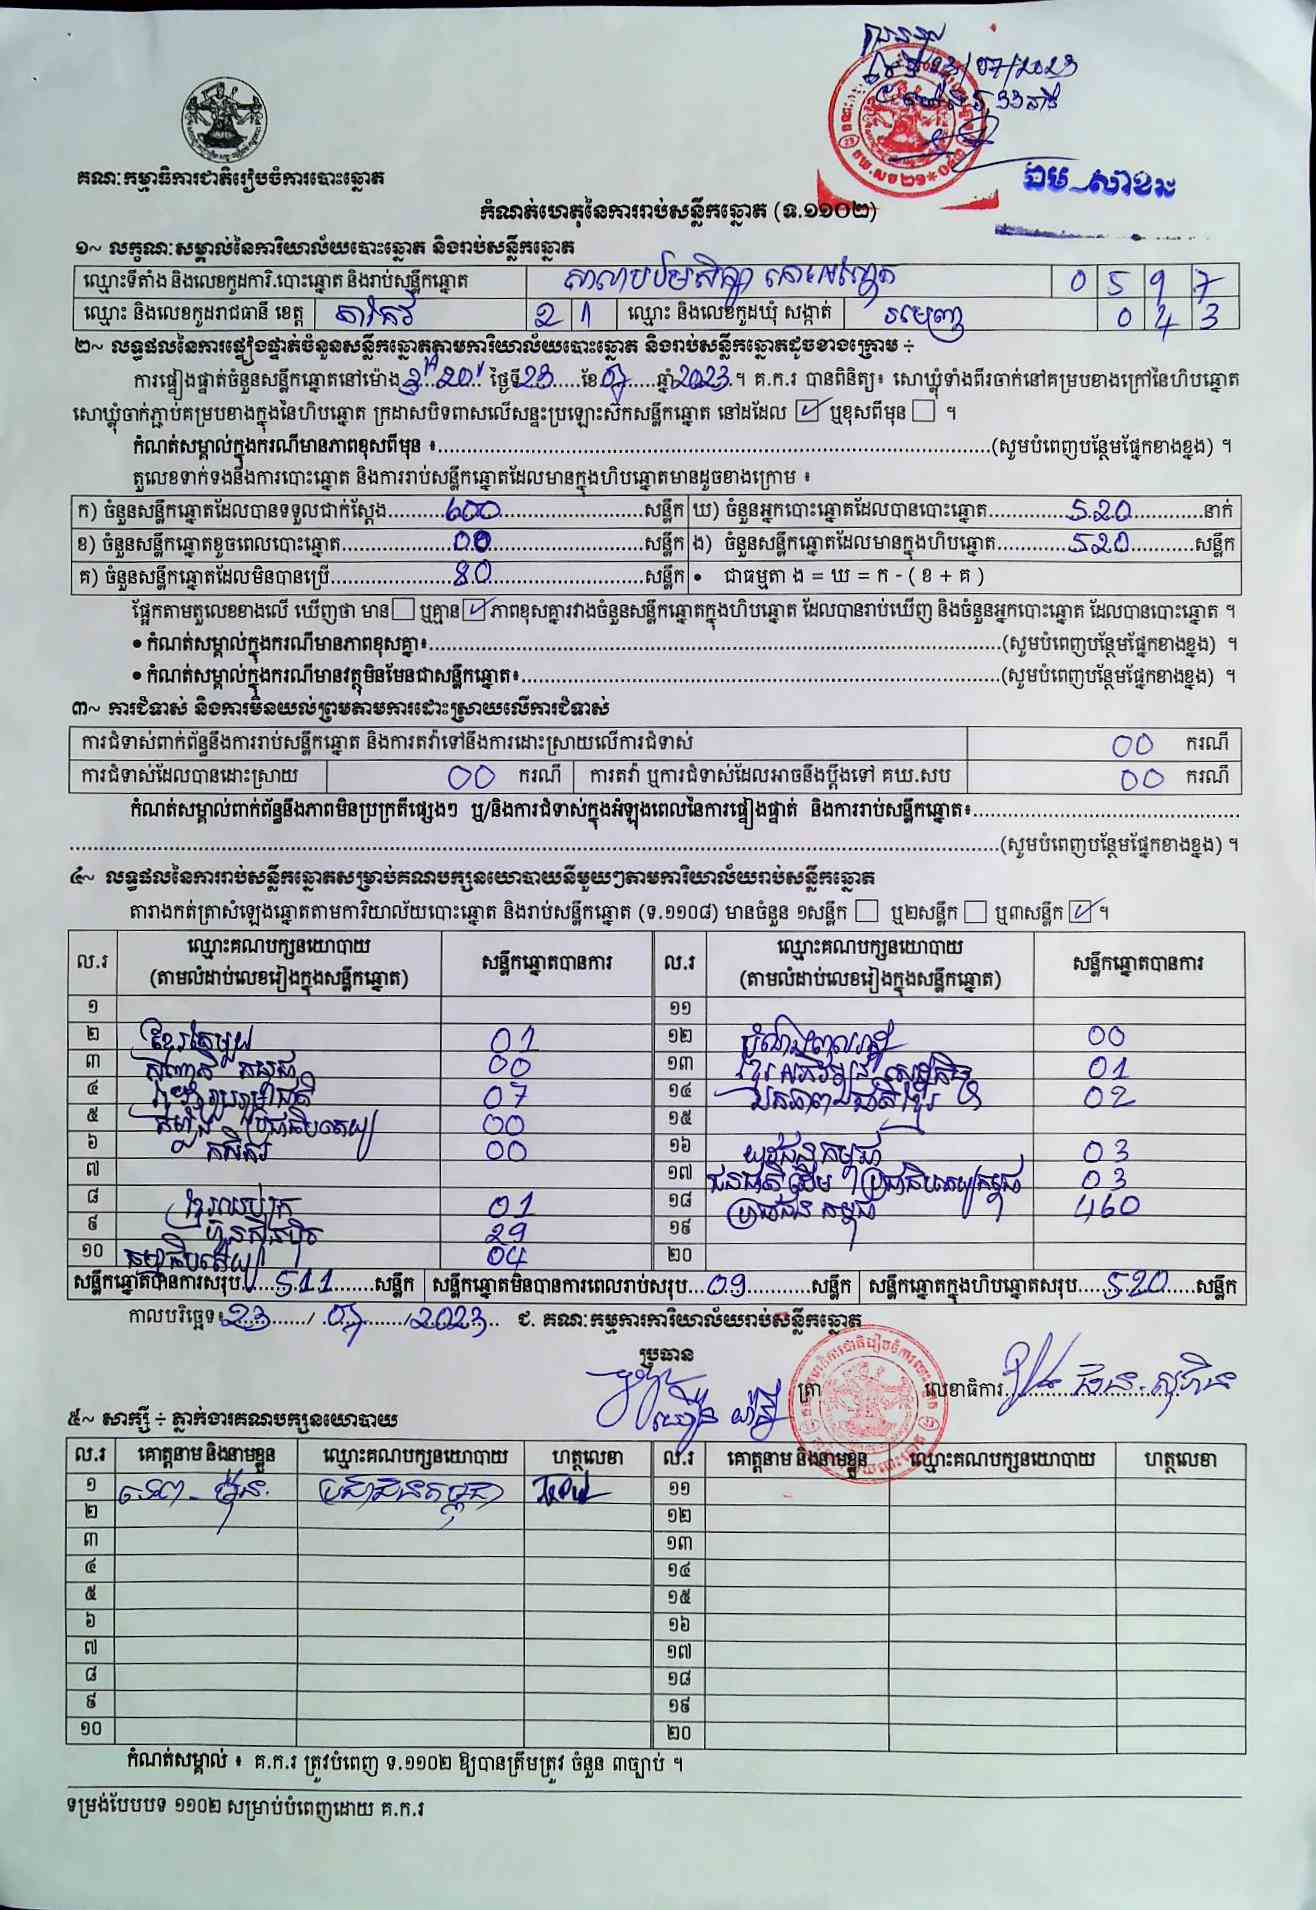 ២៣/07/2023
៥ ៖ ៣៣នាទី
ឯម សាខន
គណៈកម្មាធិការជាតិរៀបចំការបោះឆ្នោត
កំណត់ហេតុនៃការរាប់សន្លឹកឆ្នោត (ទ.១១០២)
១~ លក្ខណៈសម្គាល់នៃការិយាល័យបោះឆ្នោត និងរាប់សន្លឹកឆ្នោត
ឈ្មោះទីតាំង និងលេខកូដការិ.បោះឆ្នោត និងរាប់សន្លឹកឆ្នោត សាលាបឋមសិក្សា 0 5 9 7
ឈ្មោះ និងលេខកូដរាជធានី ខេត្ត តាកែវ 2 1 ឈ្មោះ និងលេខកូដឃុំ សង្កាត់ 0 4 3
២~ លទ្ធផលនៃការផ្ទៀងផ្ទាត់ចំនួនសន្លឹកឆ្នោតតាមការិយាល័យបោះឆ្នោត និងរាប់សន្លឹកឆ្នោតដូចខាងក្រោម ÷
ការផ្ទៀងផ្ទាត់ចំនួនសន្លឹកឆ្នោតនៅម៉ោង 3H 20' ថ្ងៃទី 23 ខែ 07 ឆ្នាំ 2023 ។ គ.ក.រ បានពិនិត្យ៖ សោឃ្លុំទាំងពីរចាក់នៅគម្របខាងក្រៅនៃហិបឆ្នោត
សោឃ្លុំចាក់ភ្ជាប់គម្របខាងក្នុងនៃហិបឆ្នោត ក្រដាសបិទពាសលើសន្ទះប្រឡោះស៊កសន្លឹកឆ្នោត នៅដដែល ☑ ឬខុសពីមុន ☐ ។
កំណត់សម្គាល់ក្នុងករណីមានភាពខុសពីមុន ៖ (សូមបំពេញបន្ថែមផ្នែកខាងខ្នង) ។
តួលេខទាក់ទងនឹងការបោះឆ្នោត និងការរាប់សន្លឹកឆ្នោតដែលមានក្នុងហិបឆ្នោតមានដូចខាងក្រោម ៖
ក) ចំនួនសន្លឹកឆ្នោតដែលបានទទួលជាក់ស្តែង 600 សន្លឹក ឃ) ចំនួនអ្នកបោះឆ្នោតដែលបានបោះឆ្នោត 520 នាក់
ខ) ចំនួនសន្លឹកឆ្នោតខូចពេលបោះឆ្នោត 00 សន្លឹក ង) ចំនួនសន្លឹកឆ្នោតដែលមានក្នុងហិបឆ្នោត 520 សន្លឹក
គ) ចំនួនសន្លឹកឆ្នោតដែលមិនបានប្រើ 80 សន្លឹក • ជាធម្មតា ង = ឃ = ក - ( ខ + គ )
ផ្អែកតាមតួលេខខាងលើ ឃើញថា មាន ☐ ឬគ្មាន ☑ ភាពខុសគ្នារវាងចំនួនសន្លឹកឆ្នោតក្នុងហិបឆ្នោត ដែលបានរាប់ឃើញ និងចំនួនអ្នកបោះឆ្នោត ដែលបានបោះឆ្នោត ។
• កំណត់សម្គាល់ក្នុងករណីមានភាពខុសគ្នា៖ (សូមបំពេញបន្ថែមផ្នែកខាងខ្នង) ។
• កំណត់សម្គាល់ក្នុងករណីមានវត្ថុមិនមែនជាសន្លឹកឆ្នោត៖ (សូមបំពេញបន្ថែមផ្នែកខាងខ្នង) ។
៣~ ការជំទាស់ និងការមិនយល់ព្រមតាមការដោះស្រាយលើការជំទាស់
ការជំទាស់ពាក់ព័ន្ធនឹងការរាប់សន្លឹកឆ្នោត និងការតវ៉ាទៅនឹងការដោះស្រាយលើការជំទាស់ 00 ករណី
ការជំទាស់ដែលបានដោះស្រាយ 00 ករណី ការតវ៉ា ឬការជំទាស់ដែលអាចនឹងប្តឹងទៅ គឃ.សប 00 ករណី
កំណត់សម្គាល់ពាក់ព័ន្ធនឹងភាពមិនប្រក្រតីផ្សេងៗ ឬ/និងការជំទាស់ក្នុងអំឡុងពេលនៃការផ្ទៀងផ្ទាត់ និងការរាប់សន្លឹកឆ្នោត៖
(សូមបំពេញបន្ថែមផ្នែកខាងខ្នង) ។
៤~ លទ្ធផលនៃការរាប់សន្លឹកឆ្នោតសម្រាប់គណបក្សនយោបាយនីមួយៗតាមការិយាល័យរាប់សន្លឹកឆ្នោត
តារាងកត់ត្រាសំឡេងឆ្នោតតាមការិយាល័យបោះឆ្នោត និងរាប់សន្លឹកឆ្នោត (ទ.១១០៨) មានចំនួន ១សន្លឹក ☐ ឬ២សន្លឹក ☐ ឬ៣សន្លឹក ☑ ។
ល.រ ឈ្មោះគណបក្សនយោបាយ (តាមលំដាប់លេខរៀងក្នុងសន្លឹកឆ្នោត) សន្លឹកឆ្នោតបានការ ល.រ ឈ្មោះគណបក្សនយោបាយ (តាមលំដាប់លេខរៀងក្នុងសន្លឹកឆ្នោត) សន្លឹកឆ្នោតបានការ
១ ១១
២ ខ្មែរតែមួយ 01 ១២ 00
៣ 00 ១៣ 01
៤ 07 ១៤ ឯកភាពជាតិខ្មែរ 02
៥ កម្លាំងប្រជាធិបតេយ្យ 00 ១៥
៦ កសិករ 00 ១៦ យុវជនកម្ពុជា 03
៧ ១៧ ជនជាតិដើមប្រជាធិបតេយ្យកម្ពុជា 03
៨ ខ្មែរឈប់ក្រ 01 ១៨ ប្រជាជនកម្ពុជា 460
៩ ហ៊្វុនស៊ិនប៉ិច 29 ១៩
១០ ធម្មាធិបតេយ្យ 04 ២០
សន្លឹកឆ្នោតបានការសរុប 511 សន្លឹក សន្លឹកឆ្នោតមិនបានការពេលរាប់សរុប 09 សន្លឹក សន្លឹកឆ្នោតក្នុងហិបឆ្នោតសរុប 520 សន្លឹក
កាលបរិច្ឆេទ៖ 23 / 07 / 2023 ជ. គណៈកម្មការការិយាល័យរាប់សន្លឹកឆ្នោត
ប្រធាន
ត្រា លេខាធិការ
៥~ សាក្សី ÷ ភ្នាក់ងារគណបក្សនយោបាយ
ល.រ គោត្តនាម និងនាមខ្លួន ឈ្មោះគណបក្សនយោបាយ ហត្ថលេខា ល.រ គោត្តនាម និងនាមខ្លួន ឈ្មោះគណបក្សនយោបាយ ហត្ថលេខា
១ ប្រជាជនកម្ពុជា ១១
២ ១២
៣ ១៣
៤ ១៤
៥ ១៥
៦ ១៦
៧ ១៧
៨ ១៨
៩ ១៩
១០ ២០
កំណត់សម្គាល់ ៖ គ.ក.រ ត្រូវបំពេញ ទ.១១០២ ឱ្យបានត្រឹមត្រូវ ចំនួន ៣ច្បាប់ ។
ទម្រង់បែបបទ ១១០២ សម្រាប់បំពេញដោយ គ.ក.រ